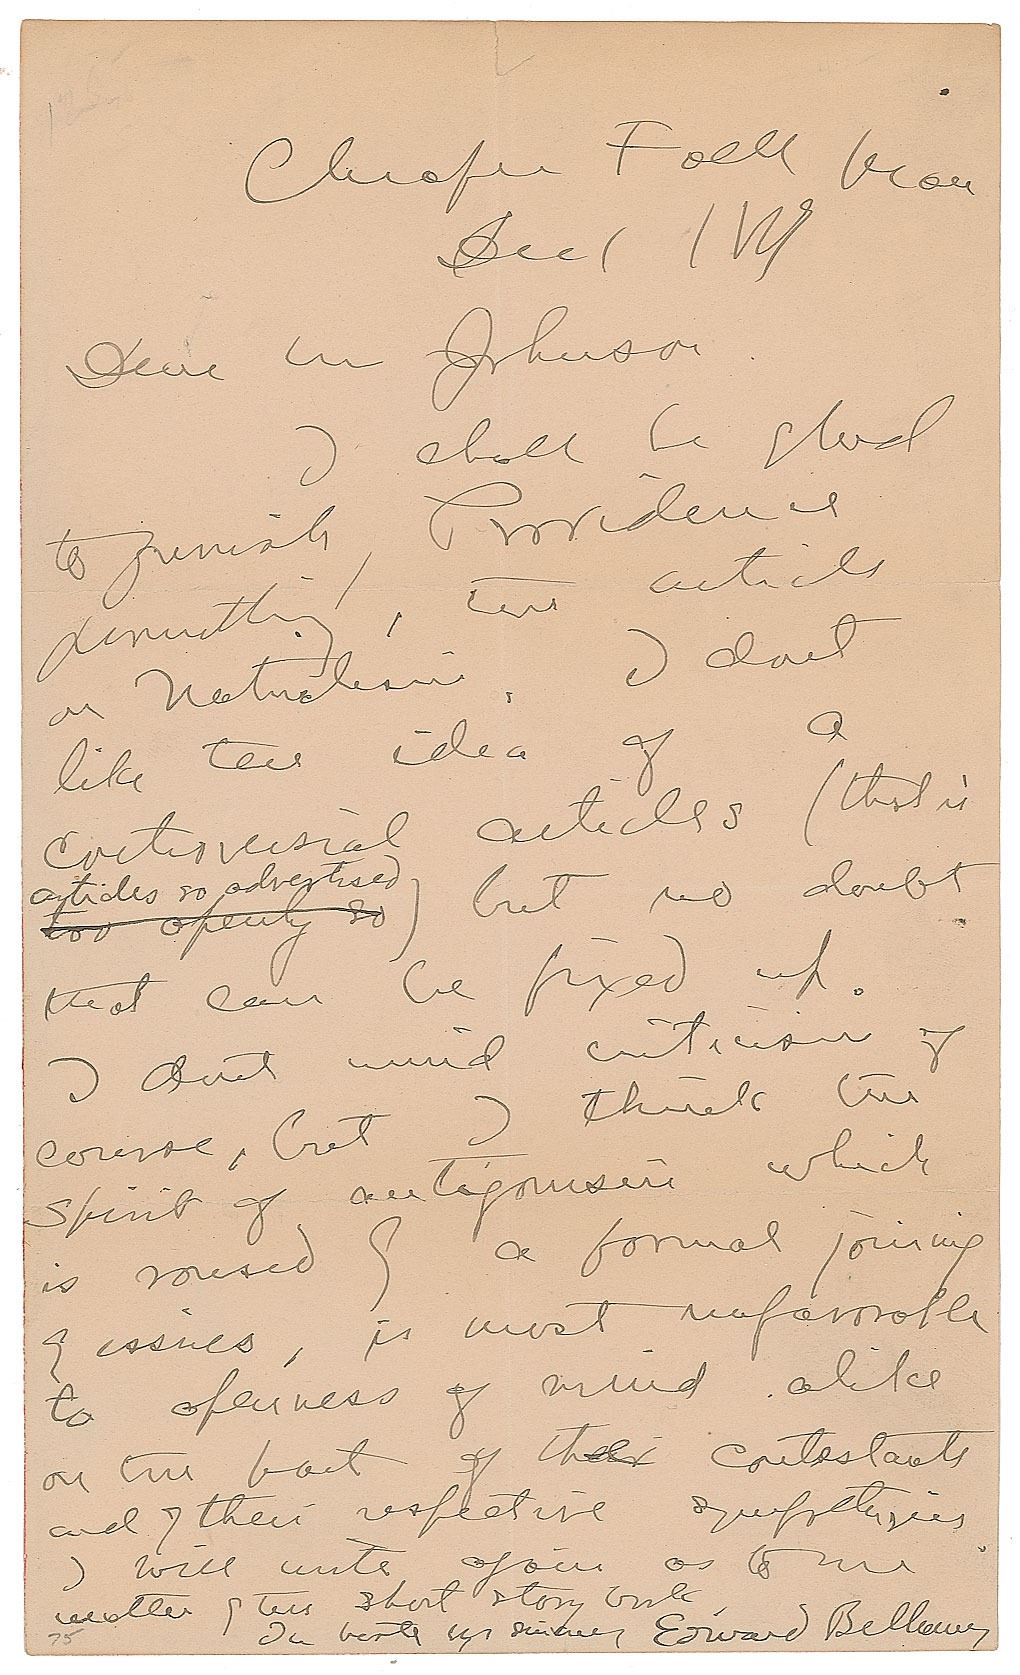 Chicopee Falls Mass
Dec 1 1889
Dear Mr Johnson.
I shall be glad
to furnish, Providence
permitting, the article
on Nationalism. I dont
like the idea of a
controversial articles (that is
articles so advertised)
too openly so but no doubt
that can be fixed up.
I dont mind criticism of
course, but I think the
spirit of antagonism which
is roused by a formal joining
of issues, is most unfavorable
to openness of mind alike
on the part of their contestants
and of their respective sympathizers
I will write again as to the
matter of the short story work.
In haste yrs sincerely Edward Bellamy
75